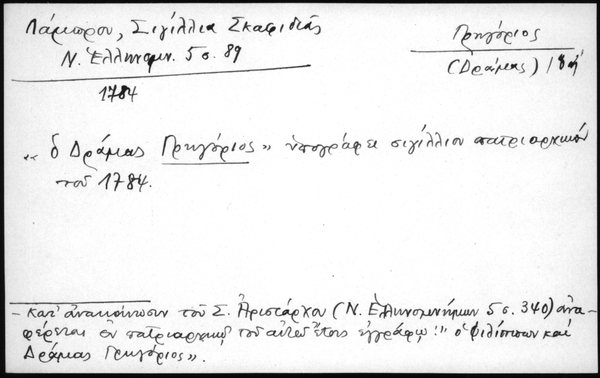 Λάμπρου, Σιγίλλια Σκαφιδιᾶς
Ν. Ἑλληνομν. 5 σ. 89
1784
Γρηγόριος
(Δράμας) 18
"ὁ Δράμας Γρηγόριος" ὑπογράφει σιγίλλιον πατριαρχικόν
τοῦ 1784.
- Κατ' ἀνακοίνωσιν τοῦ Σ. Ἀριστάρχου (Ν. Ἑλληνομνήμων 5 σ. 340) ἀνα-
φέρεται ἐν πατριαρχικῷ τοῦ αὐτοῦ ἔτους ἐγγράφῳ: "ὁ Φιλίππων καὶ
Δράμας Γρηγόριος".